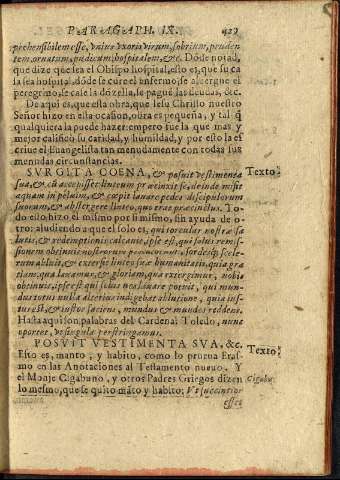 PARAGRAPH. IX. 429
prehensibilem esse, vnius vxoris virum, sobrium, pruden
tem, ornatum, pudicum, hospitalem, &c. Dõde notad,
que dize que sea el Obispo hospital, esto es, que su ca
sa sea hospital, dõde se cure el enfermo, se albergue el
peregrino, se case la dõzella, se paguẽ las deudas, &c.
De aqui es, que esta obra, que Iesu Christo nuestro
Señor hizo en esta ocasion, obra es pequeña, y tal q̃
qualquiera la puede hazer: empero fue la que mas y
mejor califico su caridad, y humildad, y por esto la es
criue el Euangelista tan menudamente con todas sus
menudas circunstancias.
SVRGIT A COENA, & posuit vestimenta Texto.
sua, & cũ accepisset linteum præcinxit se, deinde misit
aquam in peluim, & cœpit lauare pedes discipulorum
suorum, & abstergere linteo, quo erat præcinctus. To
do esto hizo el mismo por si mismo, sin ayuda de o-
tro: aludiendo a que el solo es, qui torcular nostræ sa
lutis, & redemptionis calcauit, ipse est, qui solus remis-
sionem obtinuit nostrorum peccatorum,
rum abluit, & extersit linteo suæ humanitatis, quia gra
tiam, qua lauamur, & gloriam, qua extergimur, nobis
obtinuit, ipse est qui solus nos lauare potuit, qui mun-
dus totus nulla alterius indigebat ablutione, quia ius-
tus est, & iustos faciens, mundus & mundos reddens.
Hasta aqui son palabras del Cardenal Toledo, nunc
oportet, vt singula perstringamus.
POSVIT VESTIMENTA SVA, &c. Texto.
Esto es, manto, y habito, como lo prueua Eras-
mo en las Anotaciones al Testamento nueuo. Y
el Monje Cigabuno, y otros Padres Griegos dizen Cigabu.
lo mesmo, que se quitò mãto y habito; Vt succintior
esset